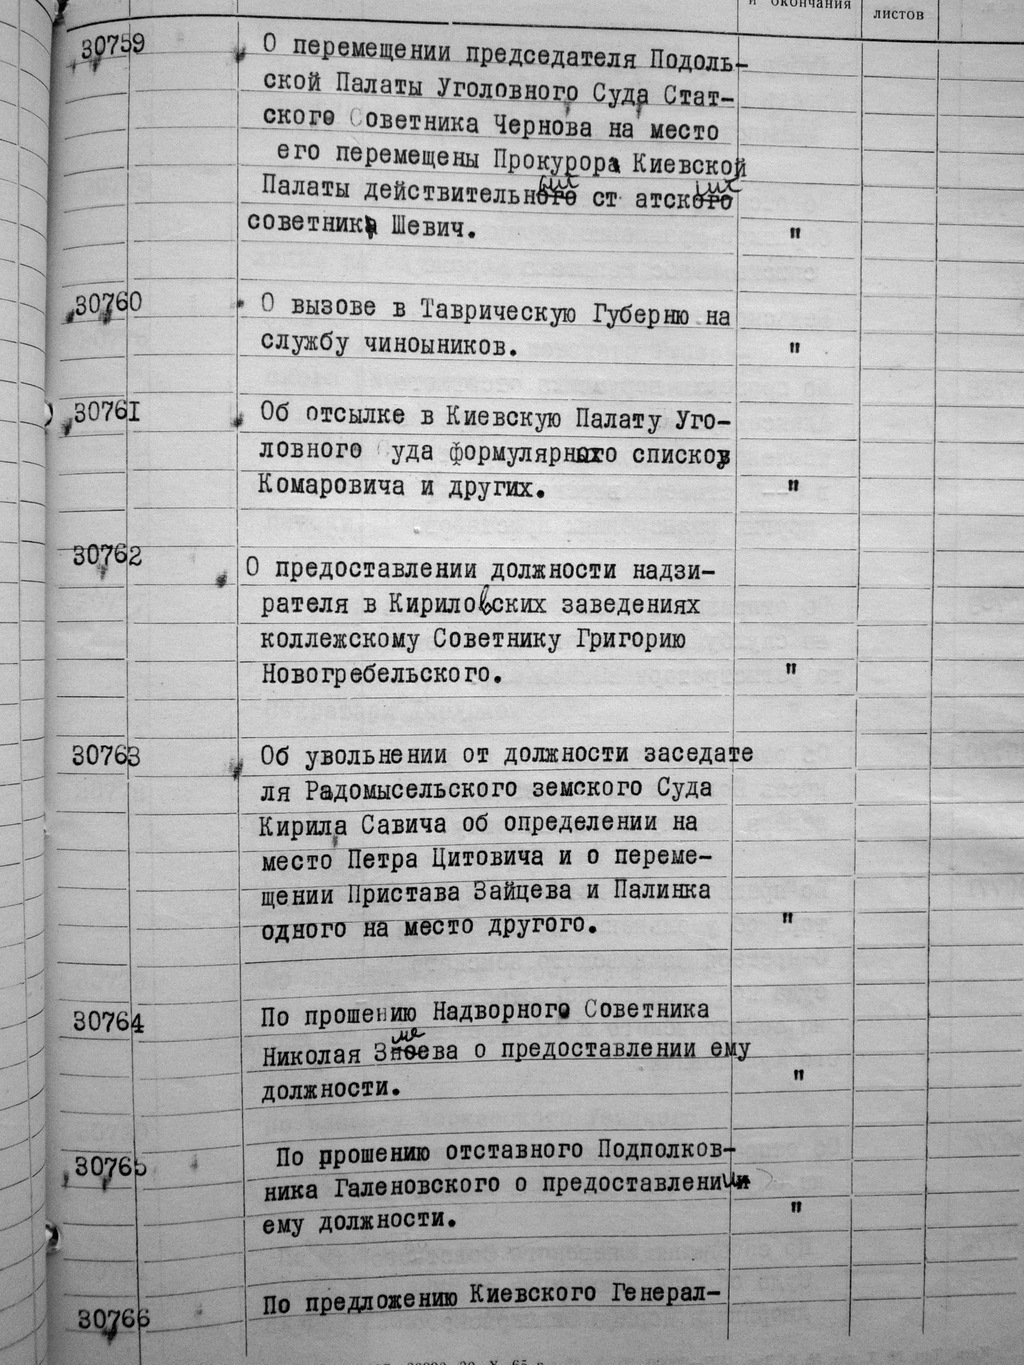 и окончания
листов
30759
О перемещении председателя Подоль-
ской Палаты Уголовного Суда Стат-
ского Советника Чернова на место
его перемещены Прокурора Киевской
Палаты действительного ст атского
советника Шевич. "
30760
О вызове в Таврическую Губерню на
службу чиноыников. "
30761
Об отсылке в Киевскую Палату Уго-
ловного Суда формулярного списков
Комаровича и других. "
30762
О предоставлении должности надзи-
рателя в Кириловских заведениях
коллежскому Советнику Григорию
Новогребельского. "
30763
Об увольнении от должности заседате
ля Радомысельского земского Суда
Кирила Савича об определении на
место Петра Цитовича и о переме-
щении Пристава Зайцева и Палинка
одного на место другого. "
30764
По прошению Надворного Советника
Николая Змеева о предоставлении ему
должности. "
30765
По прошению отставного Подполков-
ника Галеновского о предоставлении
ему должности. "
30766
По предложению Киевского Генерал-